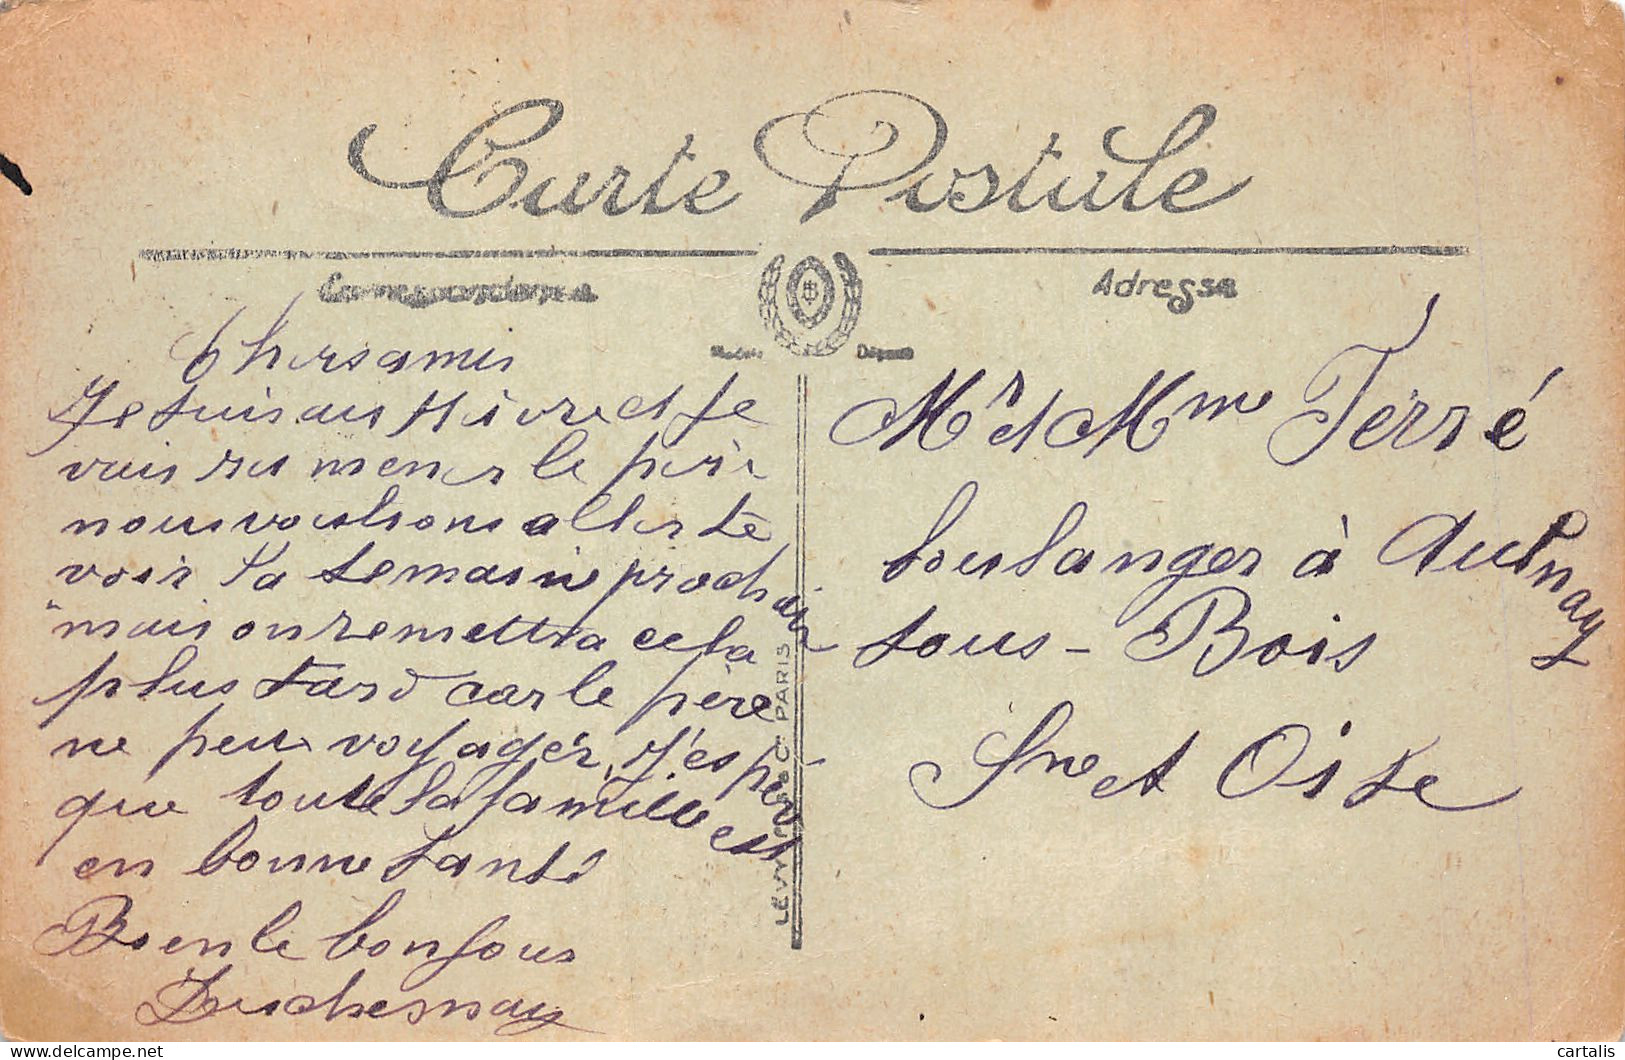 Carte Postale
Correspondance
Adresse
Modèle Déposé
Chers amis
Je suis au Havre et je
vais ramener le père
nous voulions aller te
voir la semaine prochaine
mais on remettra cela
plus tard car le père
ne peu voyager, J'espère
que toute la famille est
en bonne santé
Bien le bonjour
Duchesnay
LEVY PARIS
Mr et Mme Terré
boulanger à Aulnay
sous-Bois
Sne et Oise
cartalis